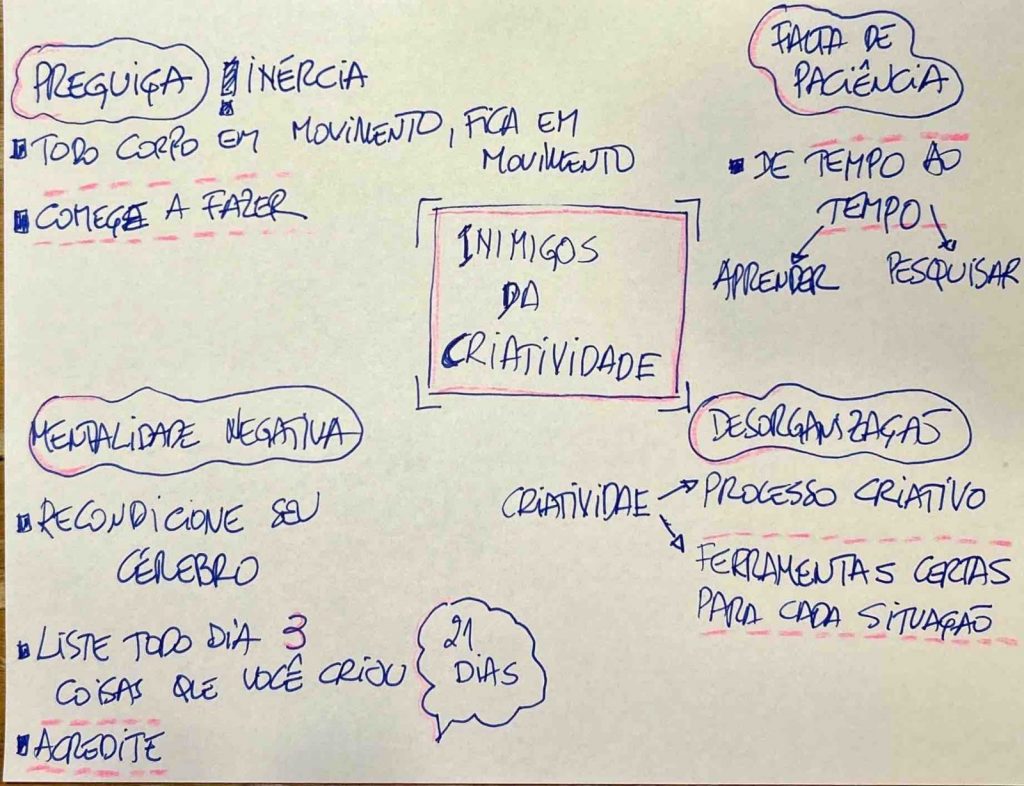 PREGUIÇA
INÉRCIA
TODO CORPO EM MOVIMENTO, FICA EM
MOVIMENTO
COMEÇE A FAZER
FALTA DE
PACIÊNCIA
DE TEMPO AO
TEMPO
APRENDER
PESQUISAR
INIMIGOS
DA
CRIATIVIDADE
MENTALIDADE NEGATIVA
RECONDICIONE SEU
CÉREBRO
LISTE TODO DIA 3
COISAS QUE VOCÊ CRIOU
21
DIAS
ACREDITE
DESORGANIZAÇÃO
CRIATIVIDAE
PROCESSO CRIATIVO
FERRAMENTAS CERTAS
PARA CADA SITUAÇÃO